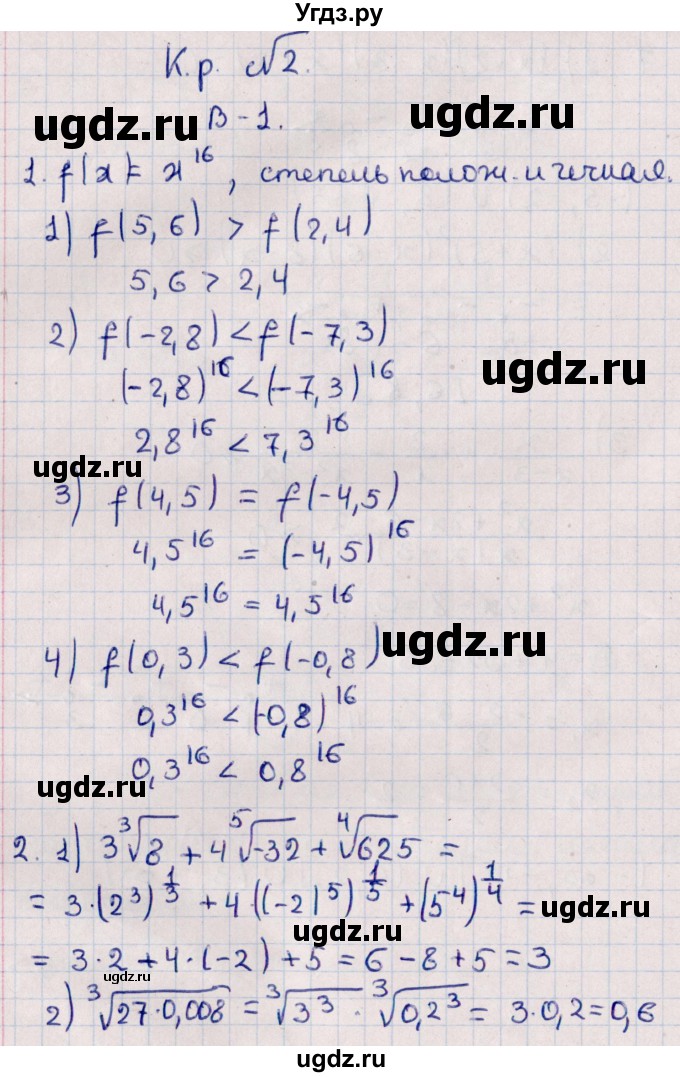 Угдз.ру
К.р. №2.
В-1.
1. f(x)= x^16, степень полож. и четная.
1) f(5,6) > f(2,4)
5,6 > 2,4
2) f(-2,8) < f(-7,3)
(-2,8)^16 < (-7,3)^16
2,8^16 < 7,3^16
3) f(4,5) = f(-4,5)
4,5^16 = (-4,5)^16
4,5^16 = 4,5^16
4) f(0,3) < f(-0,8)
0,3^16 < (-0,8)^16
0,3^16 < 0,8^16
2. 1) 3∛8 + 4⁵√-32 + ⁴√625 =
= 3·(2³)^1/3 + 4·((-2)⁵)^1/5 + (5⁴)^1/4 =
= 3·2 + 4·(-2) + 5 = 6 - 8 + 5 = 3
2) ∛27·0,008 = ∛3³ · ∛0,2³ = 3·0,2 = 0,6
ugdz.ru
ugdz.ru
ugdz.ru
ugdz.ru
ugdz.ru
ugdz.ru
ugdz.ru
ugdz.ru
ugdz.ru
ugdz.ru